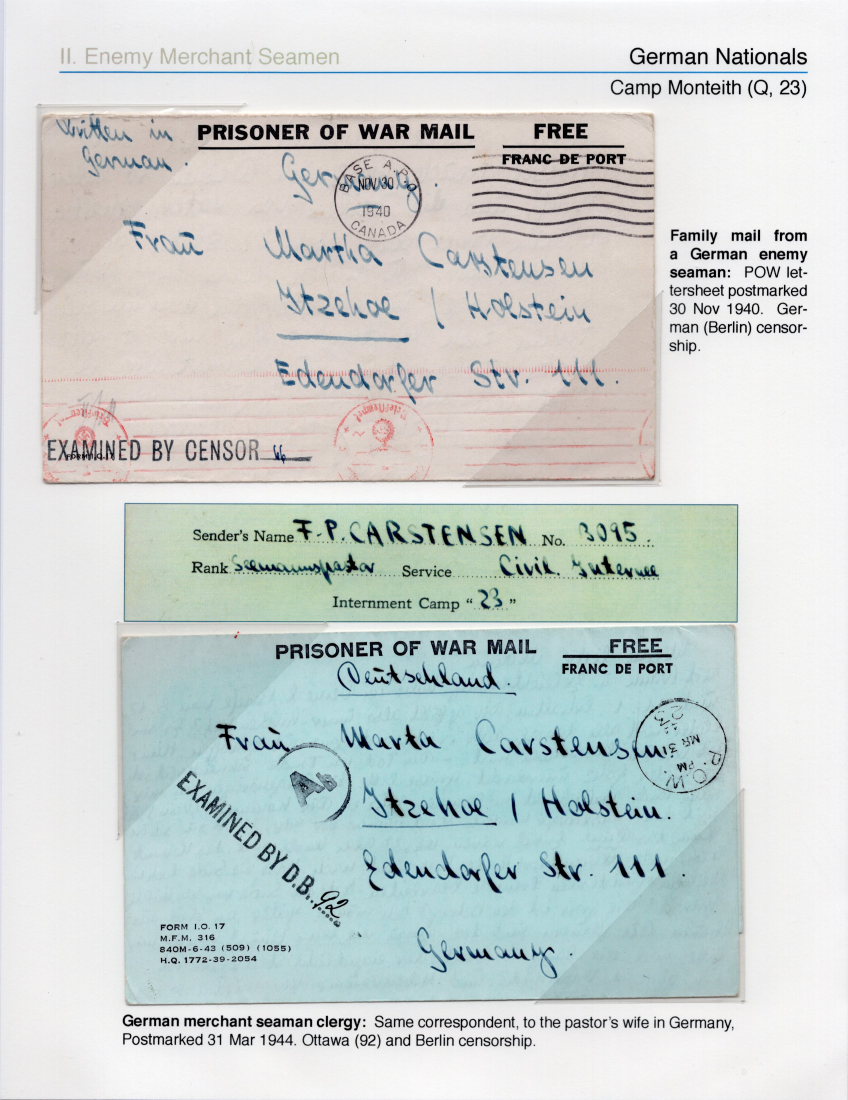 II. Enemy Merchant Seamen
German Nationals
Camp Monteith (Q, 23)
Written in
German.
PRISONER OF WAR MAIL
FREE
FRANC DE PORT
Germany
BASE A.P.O
NOV 30
1940
CANADA
Frau Martha Carstensen
Itzehoe / Holstein
Edendorfer Str. 111.
EXAMINED BY CENSOR 66
Family mail from
a German enemy
seaman: POW let-
tersheet postmarked
30 Nov 1940. Ger-
man (Berlin) censor-
ship.
Sender's Name F.P. CARSTENSEN No. 3095.
Rank Seemannspastor Service Civil Internee
Internment Camp “ 23 ”
PRISONER OF WAR MAIL
FREE
FRANC DE PORT
Deutschland.
Frau Marta Carstensen
Itzehoe / Holstein.
Edendorfer Str. 111.
Germany.
P.O.W.
PM
MR 31
Ab
EXAMINED BY D.B. 92
FORM I.O. 17
M.F.M. 316
840M-6-43 (509) (1055)
H.Q. 1772-39-2054
German merchant seaman clergy: Same correspondent, to the pastor's wife in Germany,
Postmarked 31 Mar 1944. Ottawa (92) and Berlin censorship.